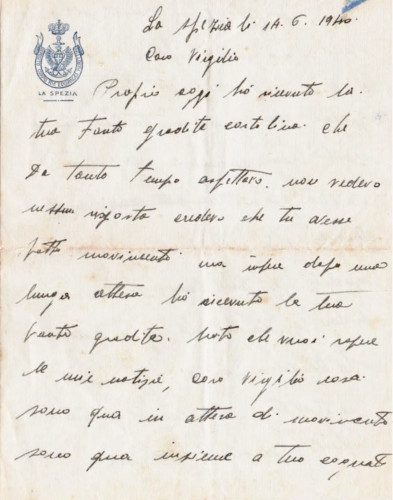 La Spezia li 14. 6. 1940.
Caro Virgilio
LA SPEZIA
Proprio oggi hò ricevuto la
tua tanto gradita cartolina che
Da tanto tempo aspettavo. non vedevo
nessun risposta credevo che tu avesse
fatto movimento ma dopo una
lunga attesa hò ricevuto la tua
tanto gradita. che vuoi sapere
le mie notizie, caro Virgilio
sono qua in attesa di movimento
sono qua insieme a tuo cognato